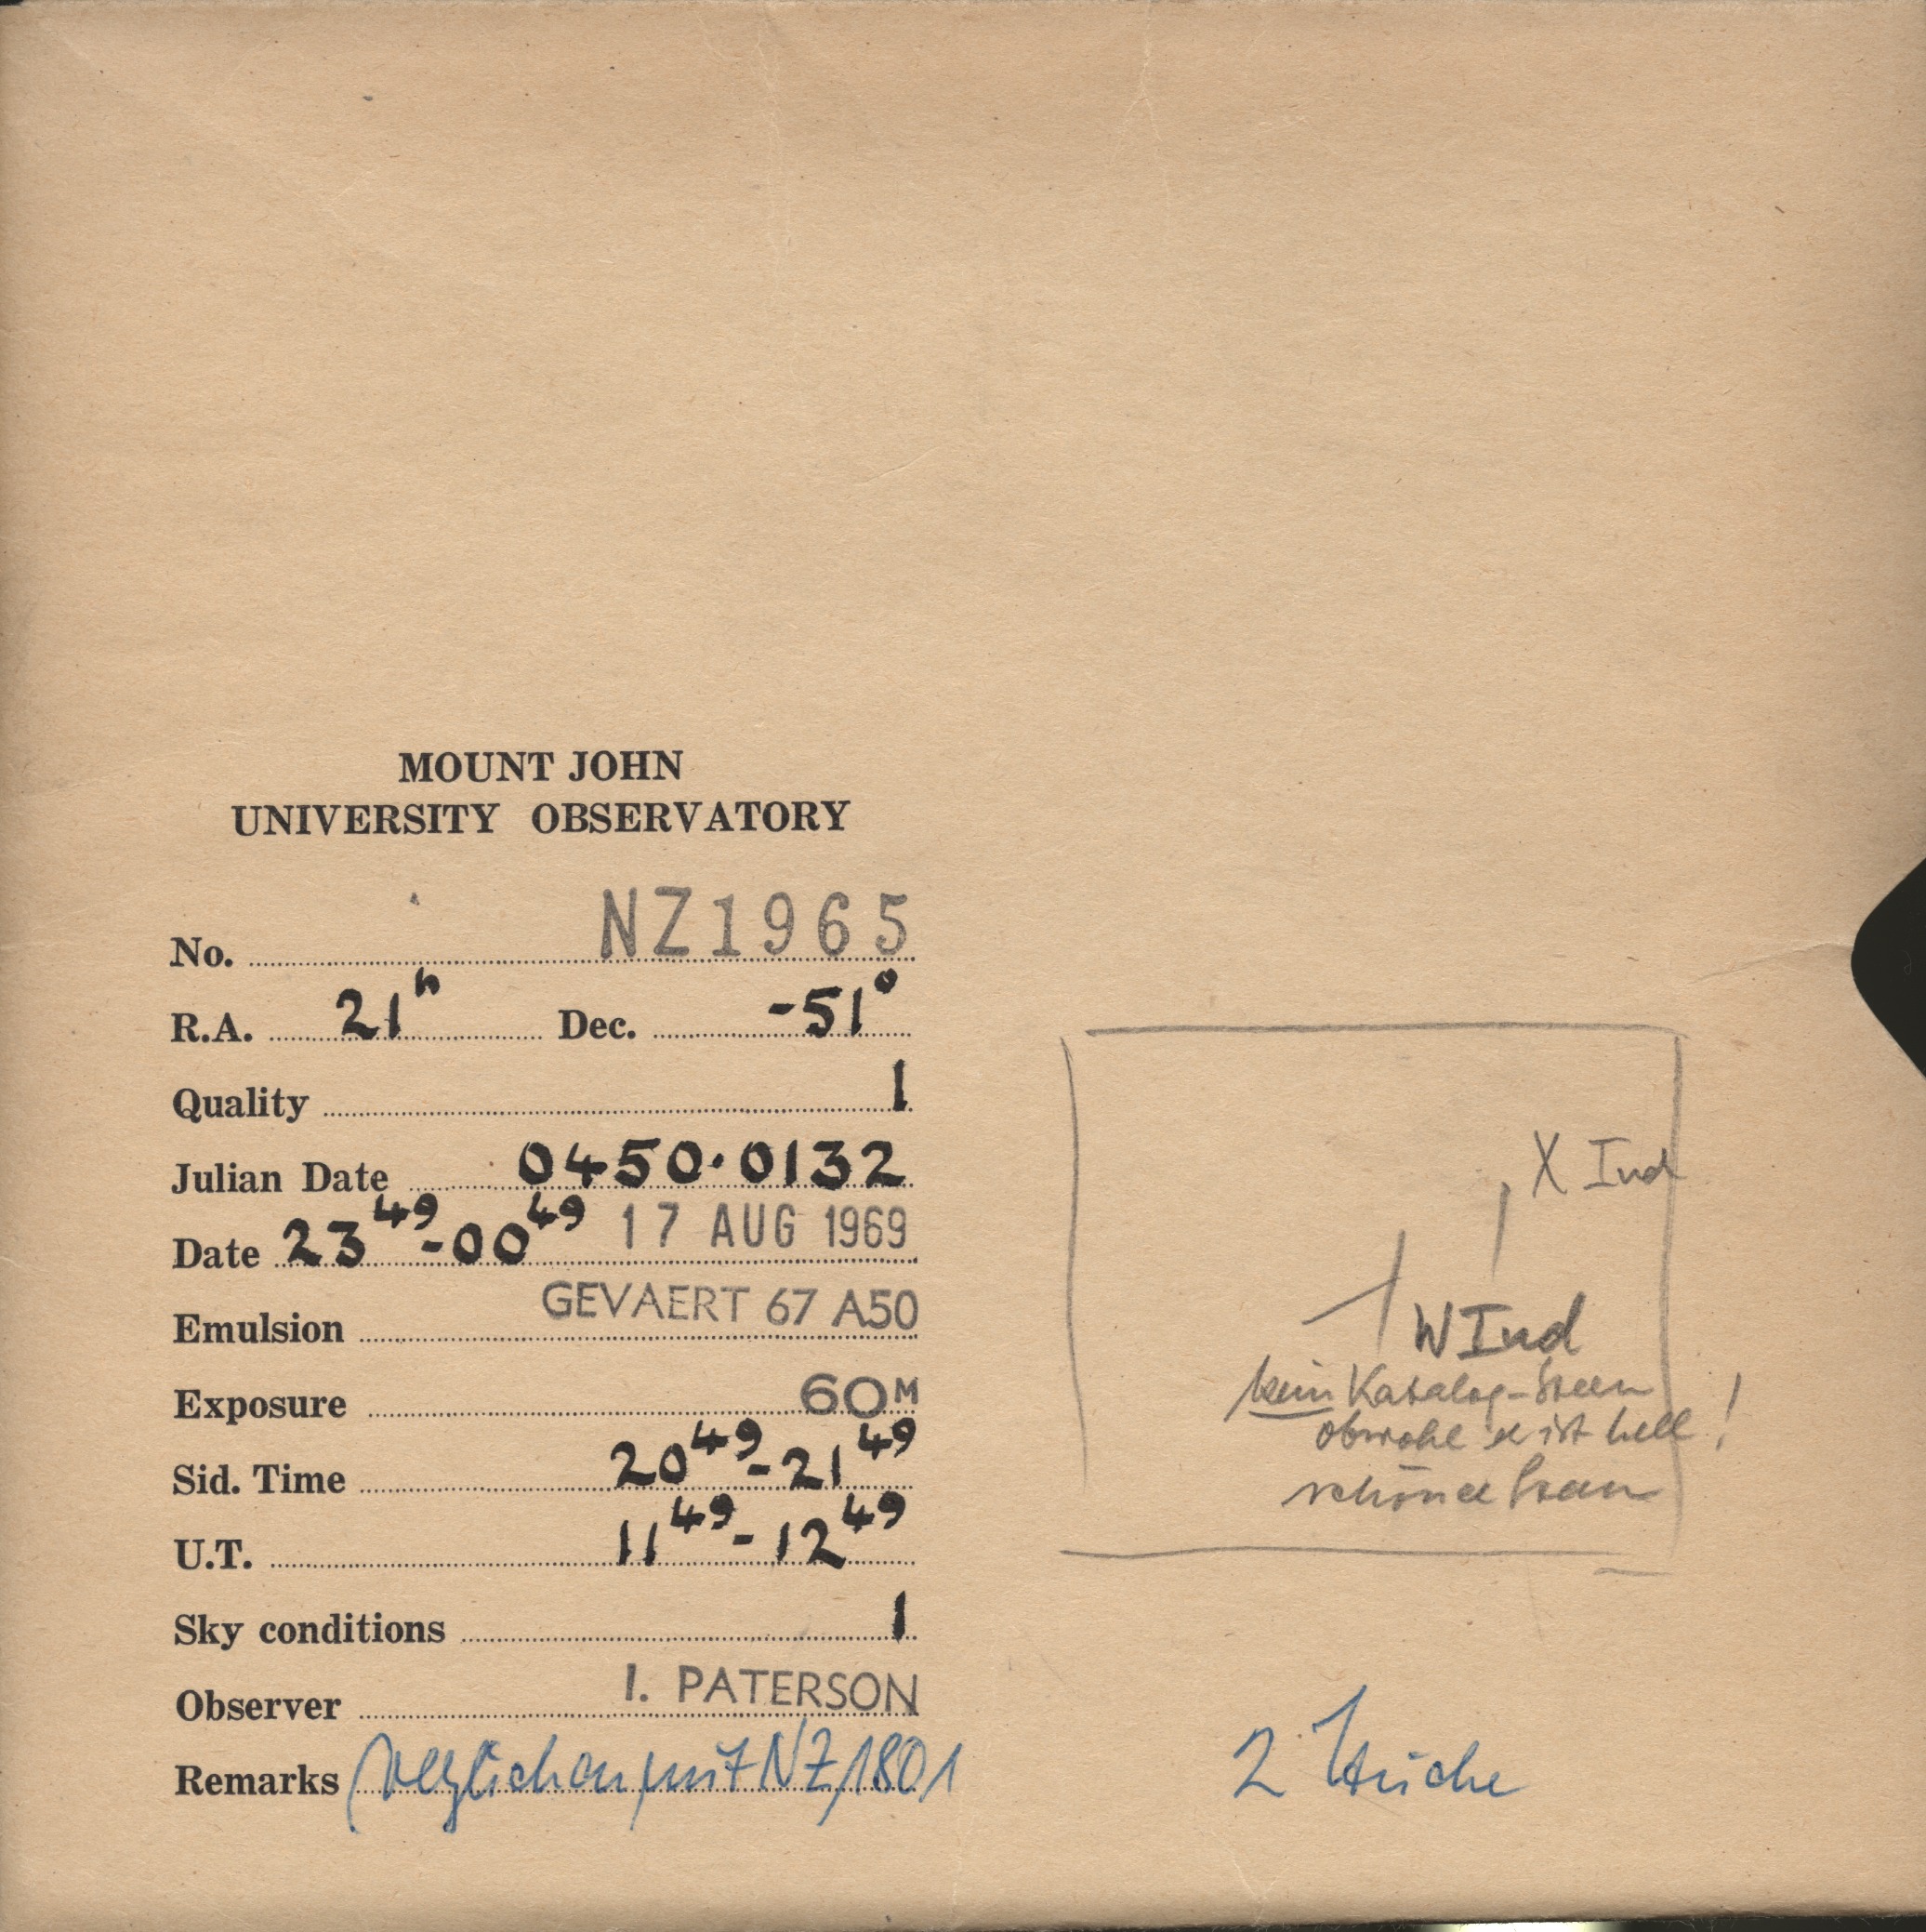 MOUNT JOHN
UNIVERSITY OBSERVATORY
No. NZ1965
R.A. 21h Dec. -51°
Quality 1
Julian Date 0450.0132
Date 23 49 - 00 49 17 AUG 1969
Emulsion GEVAERT 67 A50
Exposure 60M
Sid. Time 20 49 - 21 49
U.T. 11 49 - 12 49
Sky conditions 1
Observer I. PATERSON
Remarks verglichen mit NZ 1801
X Ind
W Ind
kein Katalog-Stern
obwohl er ist hell!
2 Striche